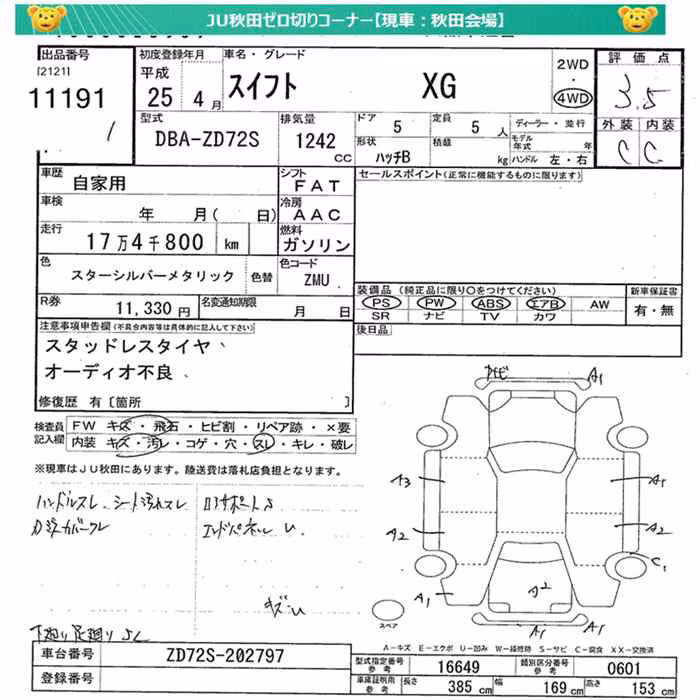 JU秋田ゼロ切りコーナー【現車：秋田会場】
出品番号
[2121]
11191
初度登録年月
平成
25年 4月
車名・グレード
スイフト XG
2WD
・
4WD
評価点
3.5
外装 内装
C C
型式
DBA-ZD72S
排気量
1242
CC
ドア 5
定員 5 人
ディーラー・並行
形状
ハッチB
積載
kg
モデル年式 年
ハンドル 左・右
車歴
自家用
シフト
FAT
セールスポイント(正常に機能するものに限ります)
車検
年 月( 日)
冷房
AAC
走行
17万4千800 km
燃料
ガソリン
色
スターシルバーメタリック 色替
色コード
ZMU
装備品 (純正品に限り〇をつけてください)
PS PW ABS エアB AW
SR ナビ TV カワ
新車保証書
有・無
R券
11,330 円
名変通知期限
月 日
後日品
注意事項申告欄(不具合内容等は具体的に記入して下さい)
スタッドレスタイヤ、
オーディオ不良
修復歴 有[箇所 ]
検査員記入欄
FW キズ・飛石・ヒビ割・リペア跡・×要
内装 キズ・汚レ・コゲ・穴・スレ・キレ・破レ
※現車はJU秋田にあります。陸送費は落札店負担となります。
ハンドルスレ、シート汚れスレ
ロアサポートS
エンドパネルU
キズU
下廻り足廻りSC
A1
A3
A1
A2
A2
C1
A1
A2
A1
A1
スペア
A－キズ E－エクボ U－凹み W－補修跡 S－サビ C－腐食 XX－交換済
車台番号
ZD72S-202797
登録番号
型式指定番号
参考
16649
類別区分番号
参考
0601
車庫証明用
参考
長さ 385 cm
幅 169 cm
高さ 153 cm